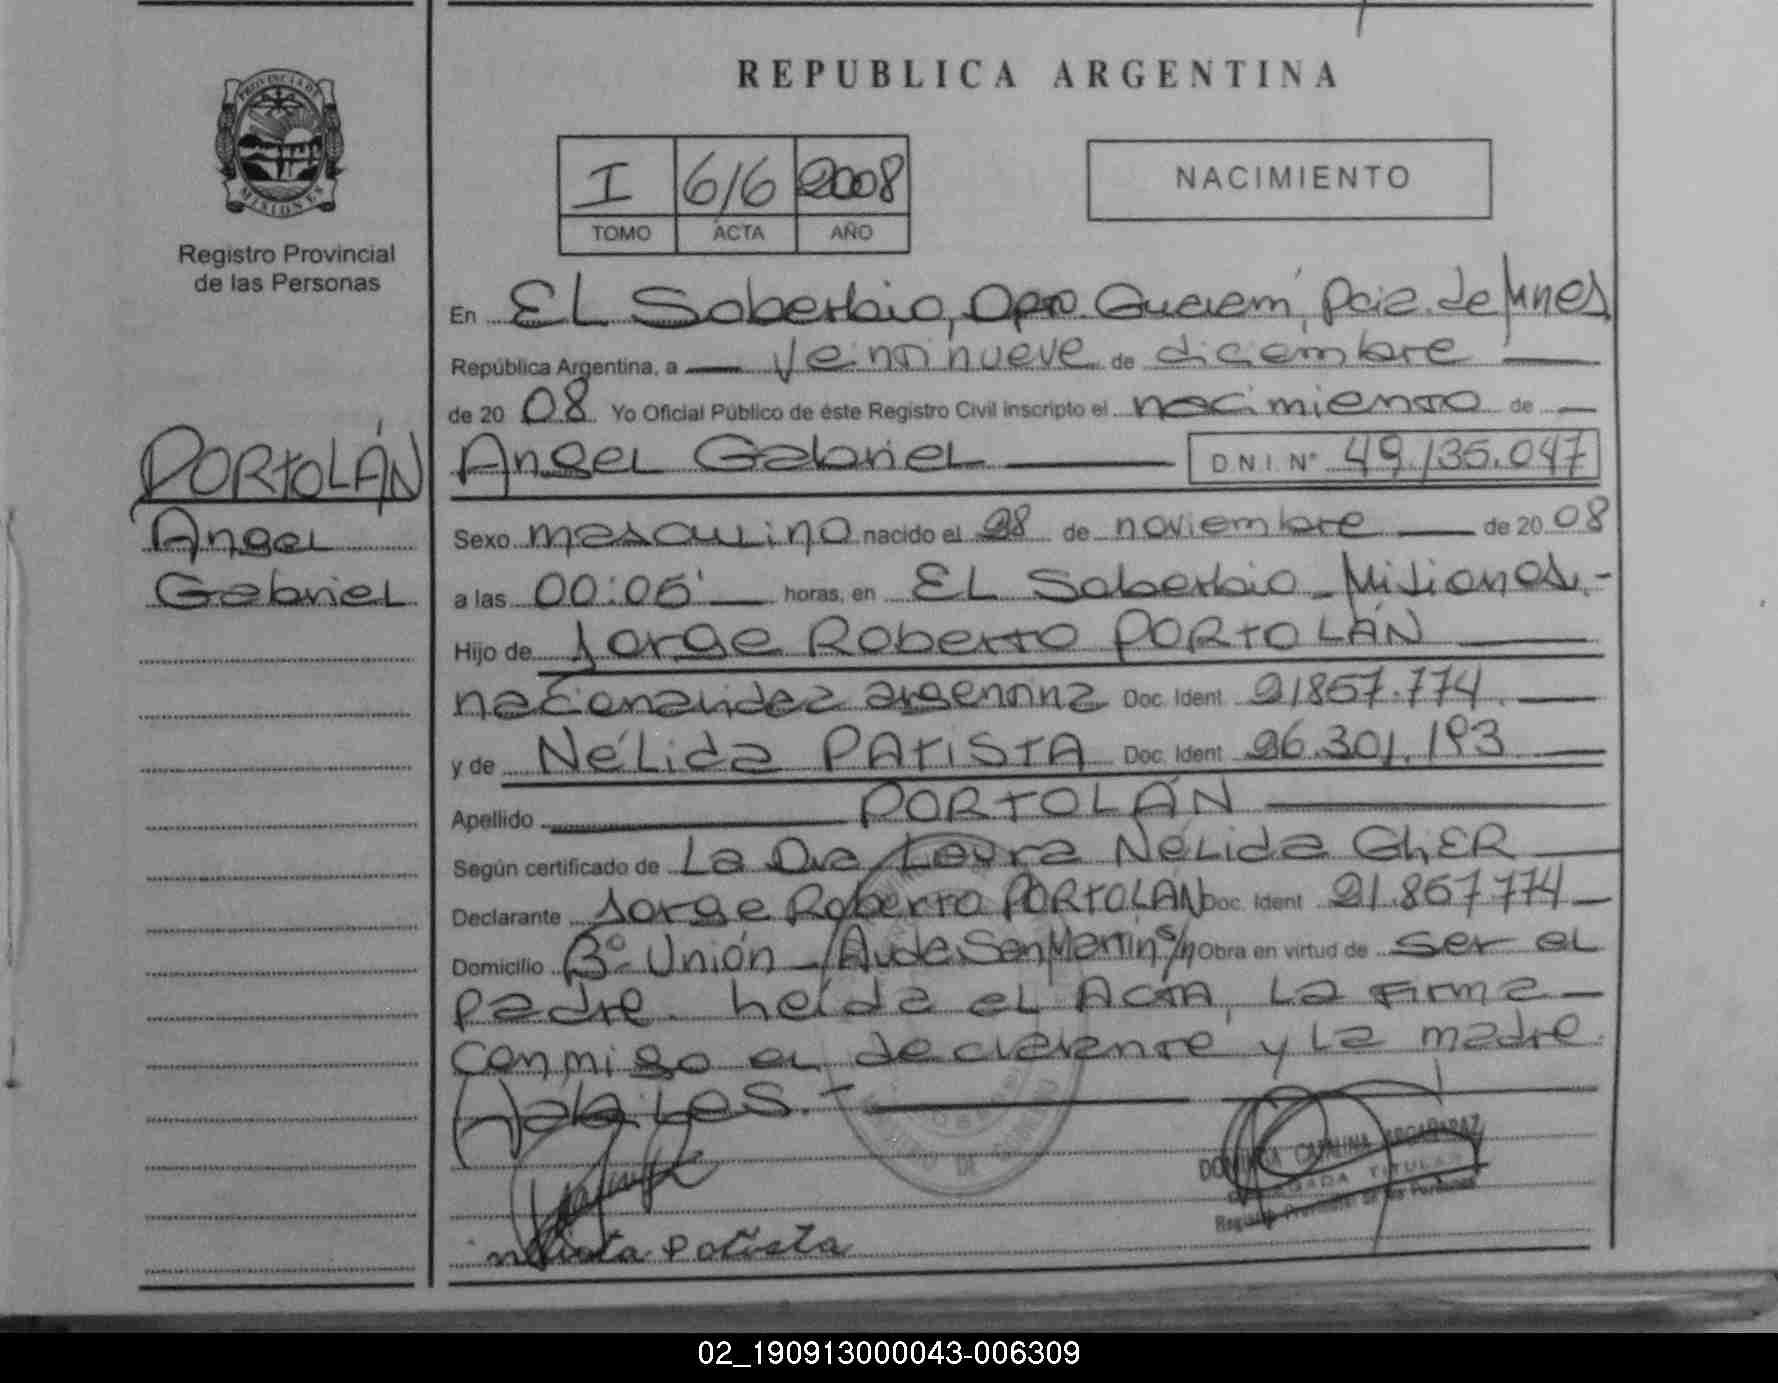 PROVINCIA DE
MISIONES
Registro Provincial
de las Personas
PORTOLÁN
Angel
Gabriel
REPUBLICA ARGENTINA
I 616 2008
TOMO ACTA AÑO
NACIMIENTO
En EL Soberbio, Dpto. Guaraní, Pcia. de Mnes,
República Argentina, a veintinueve de diciembre
de 20 08 Yo Oficial Público de éste Registro Civil inscripto el nacimiento de
Angel Gabriel D.N.I. N° 49.135.047
Sexo masculino nacido el 28 de noviembre de 20 08
a las 00:05' horas, en EL Soberbio - Misiones.-
Hijo de Jorge Roberto PORTOLÁN
nacionalidad argentina Doc. Ident 21857.774
y de Nélida PATISTA Doc. Ident 26.301.193
Apellido PORTOLÁN
Según certificado de La Dra Laura Nélida GLIER
Declarante Jorge Roberto PORTOLAN Doc. Ident 21.857774
Domicilio B° Unión - Av de San Martin s/n Obra en virtud de ser el
padre. Leída el ACTA, La Firma
conmigo el declarante y La madre.
Habiles.-
Patista
CATALINA
TITULAR
Registro Provincial de las Personas
02_190913000043-006309